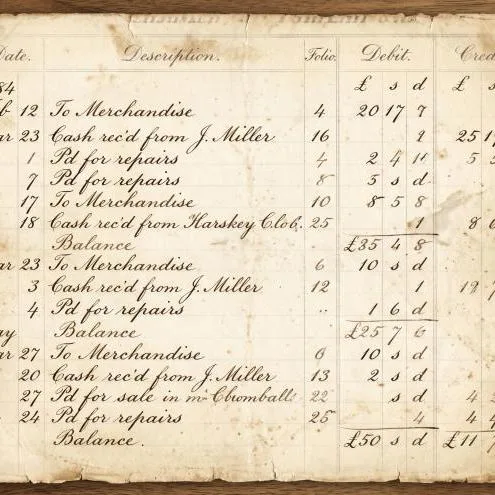 Date. Description. Folio. Debit. Cred
84 £ s d £ s
b 12 To Merchandise 4 20 17 9
ar 23 Cash rec'd from J. Miller 16 9 25 1
1 Pd for repairs 4 2 4 11 5
7 Pd for repairs 8 5 s d
17 To Merchandise 10 8 5 8
18 Cash rec'd from Harskey Clob. 25 1 8
Balance £35 4 8
ar 23 To Merchandise 6 10 s d
3 Cash rec'd from J. Miller 12 1
4 Pd for repairs .. 1 6 d
ay Balance £25 7 6
ar 27 To Merchandise 10 s d
20 Cash rec'd from J. Miller 13 2 s d
27 Pd for sale in 22 s d 4
24 Pd for repairs 25 4 4
Balance. £50 s d £11